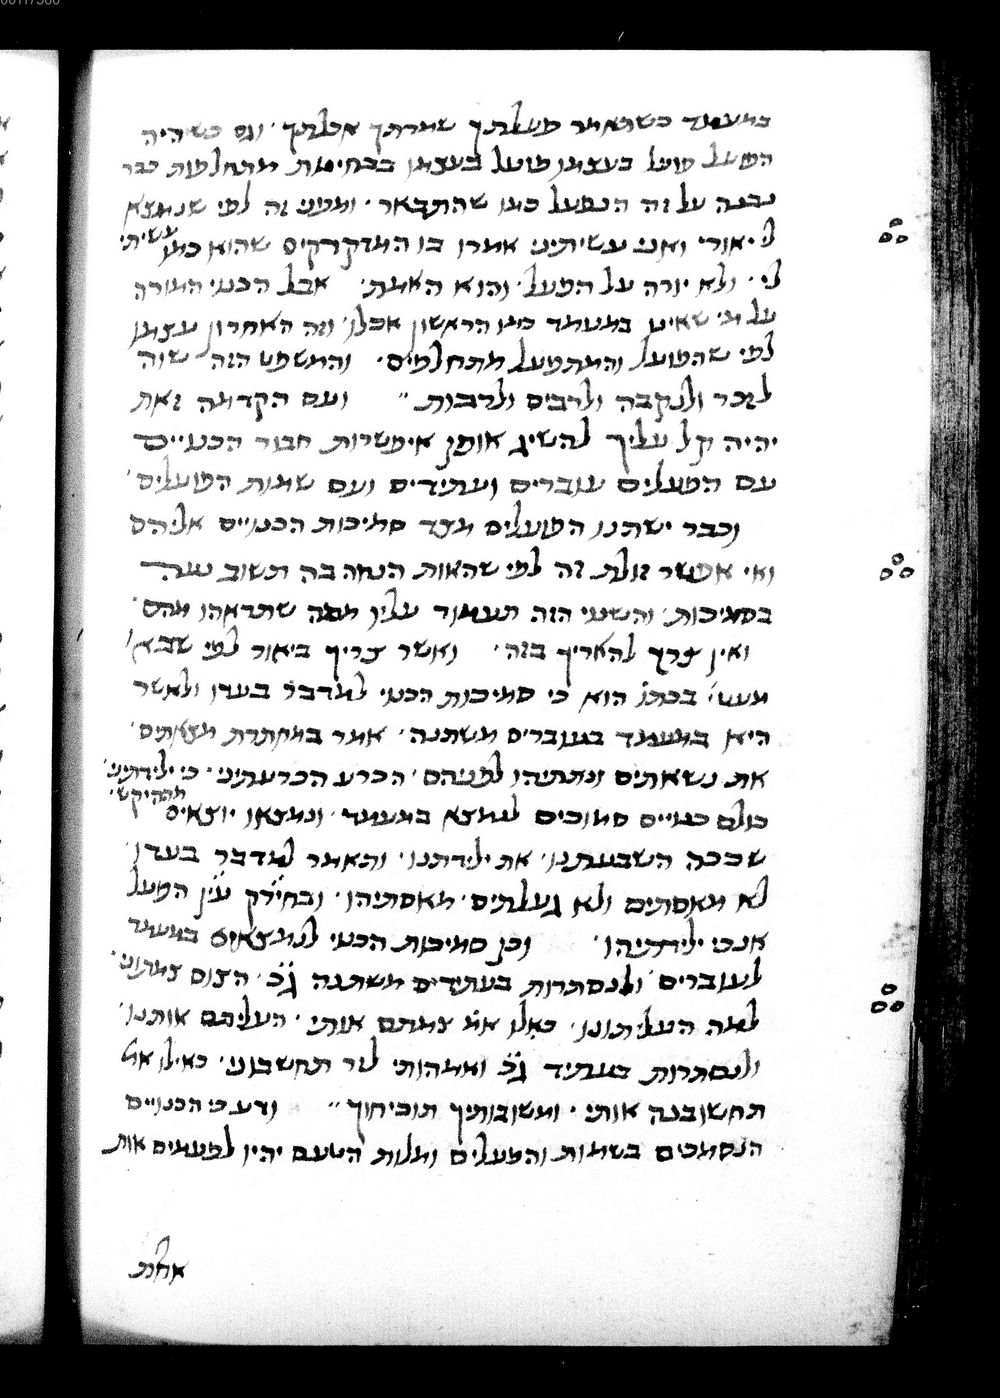 במעמד כשתאמר פעלתך שמרתך אכלתך ׳ וגם כשהיה
הפועל פועל בעצמו פועל בעצמו בבחינות מתחלפות כבר
נבנה על זה הנפעל כמו שהתבאר ׳ ומפני זה לפי שנמצא
לי יאורי ואני עשיתיני אמרו בו המדקדקים שהוא כמו עשיתי
לי ׳ ולא יורה על הפעל ׳ והוא האמת ׳ אבל הכנוי המורה
על מי שאינו במעמד כמו הראשון אכלו ׳ וזה האחרון עצמו
לפי שהפועל והמתפעל מתחלפים ׳ והמשפט הזה שוה
לזכר ולנקבה ולרבים ולרבות ״ ועם הקדמה זאת
יהיה קל עליך להשיג אופן אפשרות חבור הכנויים
עם הפעלים עוברים ועתידים ועם שמות הפועלים ׳
וכבר ישתנו הפועלים מצד סמיכות הכנויים אליהם
ואי אפשר זולת זה לפי שהאות הנחה בה תשוב נעה
בסמיכות ׳ והשנוי הזה תעמוד עליו ממה שתראהו מהם ׳
ואין צרך להאריך בזה ׳ ואשר צריך ביאור לפי שבא
מעט׳ בכתו׳ הוא כי סמיכות הכנוי למדבר בעדו ולאשר
היא במעמד בעוברים משתנה ׳ אמר במחתרת מצאתים ׳
את נשאתים ונתתיהו לפניהם ׳ הכרע הכרעתיני ׳ כי ילידתיני ׳
כולם כנויים סמוכים לנמצא במעמד ׳ ונמצאו יוצאים מההיקש ׳
שככה השבעתנו ׳ את ילידתנו ׳ ותאמר למדבר בעדו
לא מאסתים ולא געלתים ׳ מאסתיהו ׳ ובחירק עין הפעל
אנכי ילידתיהו ׳ וכן סמיכות הכנוי לנמצאים במעמד
לעוברים ׳ ולנסתרות בעתידים משתנה ג״כ ׳ הצום צמתוני ׳
למה העליתונו ׳ כאלו אמ׳ צמתם אותי ׳ העליתם אותנו ׳
ולנסתרות בעתיד ג״כ ואמהותי לזר תחשבוני ׳ כאילו אמ׳
תחשובנה אותי ׳ ומשובותיך תוכיחוך ״ ודע כי הכנויים
הנסמכים בשמות והפעלים ומלות הטעם יהיו לפעמים אות
אחת